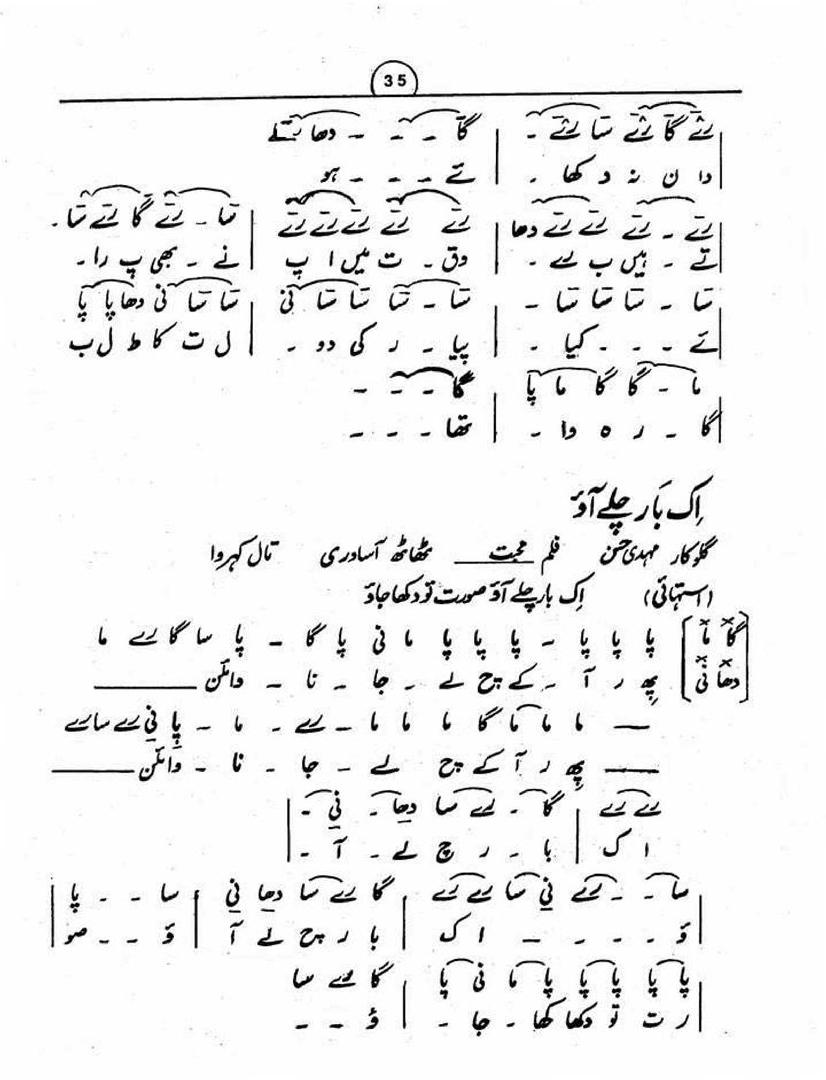 35
رے گا رے سا رے - | گا - - - دھا رے
دا ن نہ د کھا - | ئے - - - ہو
رے - رے رے رے دھا | رے رے رے رے رے | سا - رے گا رے سا -
تے - ہیں ب سے - | وق - ت میں ا پ | نے - بھی پ را -
سا - سا سا سا - | سا - سا سا سا نی | سا سا نی دھا پا پا
ئے - - - کیا - | پیا - ر کی دو - | ل ت کا ط ل ب
ما - گا گا ما پا | گا - - -
گا - ر ہ وا - | تھا - - -
اِک بَار چلے آؤ
گلوکار مہدی حسن فلم محبت ٹھاٹھ آسادری تال کہروا
(استہائی) اِک بار چلے آؤ صورت تو دکھا جاؤ
[گا ما] پا پا پا - پا پا پا ما نی پا گا - پا سا گا رے ما
[دھا نی] پھِ ر آ - کے چ لے - جا - نا - وائلن ———
— ما ما ما گا ما ما ما - رے - ما - پا نی رے سا رے
— پھِ ر آ کے چ لے - جا - نا - وائلن ———
رے رے | گا - رے سا دھا - نی - |
ا ک | با - ر چ لے - آ - |
سا - - رے نی سا رے رے | گا رے سا دھا نی | سا - - پا |
ؤ - - - - ا ک | با ر چ لے آ | ؤ - - صو |
پا پا پا پا پا ما نی پا | گا رے سا
ر ت تو دکھا کھا - جا - | ؤ - -